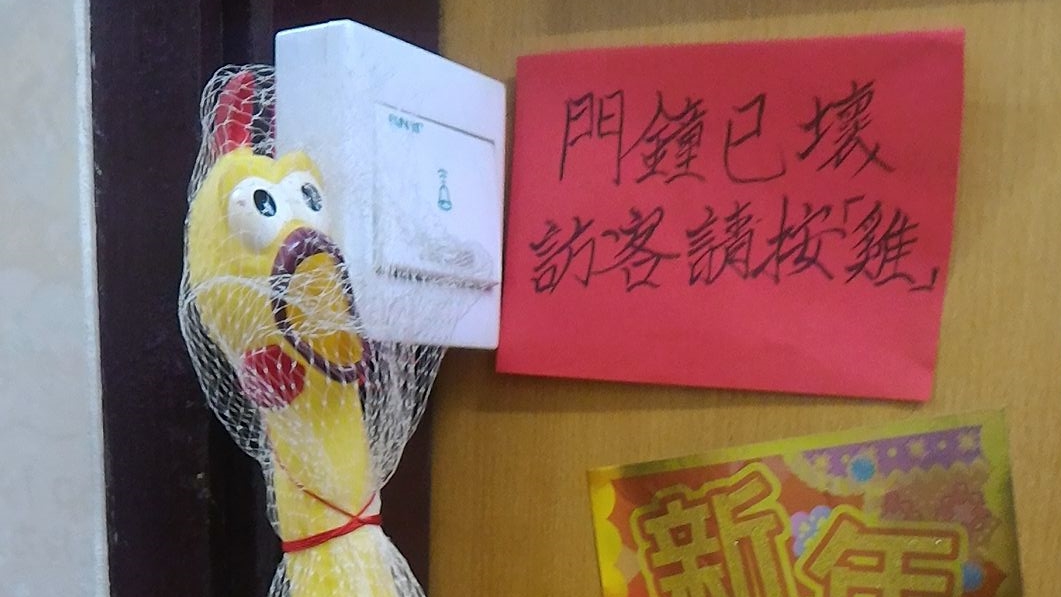 門鐘已壞
訪客請按「雞」
新年